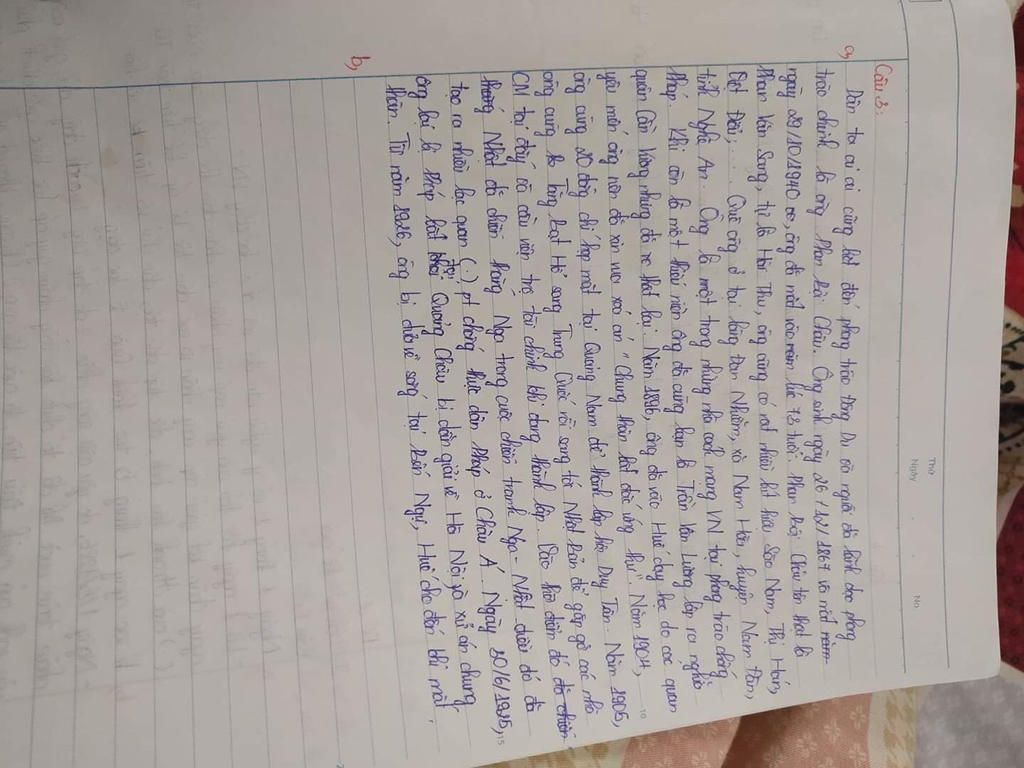 Thứ
Ngày
No
Câu 3:
a, Dân ta ai ai cũng biết đến phong trào Đông Du và người đã lãnh đạo phong
trào chính là ông Phan Bội Châu. Ông sinh ngày 26/12/1867 và mất năm
ngày 29/10/1940, ông đã mất vào năm lúc 73 tuổi. Phan Bội Châu tên thật là
Phan Văn San, tự là Hải Thu, ông cũng có rất nhiều bút hiệu Sào Nam, Thị Hán,
Độc Đỉnh;.... Quê ông ở tại làng Đan Nhiễm, xã Nam Hòa, huyện Nam Đàn,
tỉnh Nghệ An. Ông là một trong những nhà cách mạng VN tại phong trào chống
Pháp. Khi còn là một thiếu niên ông đã cùng bạn là Trần Văn Lương lập ra nghĩa
quân Cần Vương nhưng đã thất bại. Năm 1896, ông đã vào Huế dạy học do các quan
yêu mến ông nên đã xin vua xóa án "chung thân bất đắc ứng thí". Năm 1904,
ông cùng 20 đồng chí họp mặt tại Quảng Nam để thành lập hội Duy Tân. Năm 1905,
ông cùng Tăng Bạt Hổ sang Trung Quốc rồi sang tới Nhật Bản để gặp gỡ các nhà
CM tại đây và cầu viện trợ tài chính khi đang thành lập. Vào thời điểm đó đã chiến
thắng Nhật đã chiến thắng Nga trong cuộc chiến tranh Nga - Nhật điều đó đã
tạo ra nhiều lạc quan (.) pt chống thực dân Pháp ở Châu Á. Ngày 20/6/1925,
ông lại bị Pháp bắt tại Quảng Châu bị dẫn giải về Hà Nội và xử án chung
thân. Từ năm 1926, ông bị đưa về sống tại Bến Ngự, Huế cho đến khi mất.
b,
10
15